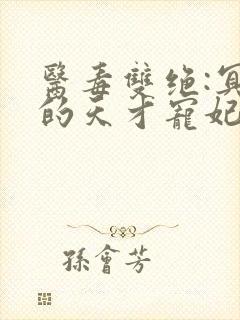 醫毒雙绝:冥
的天才寵妃
孫會芳